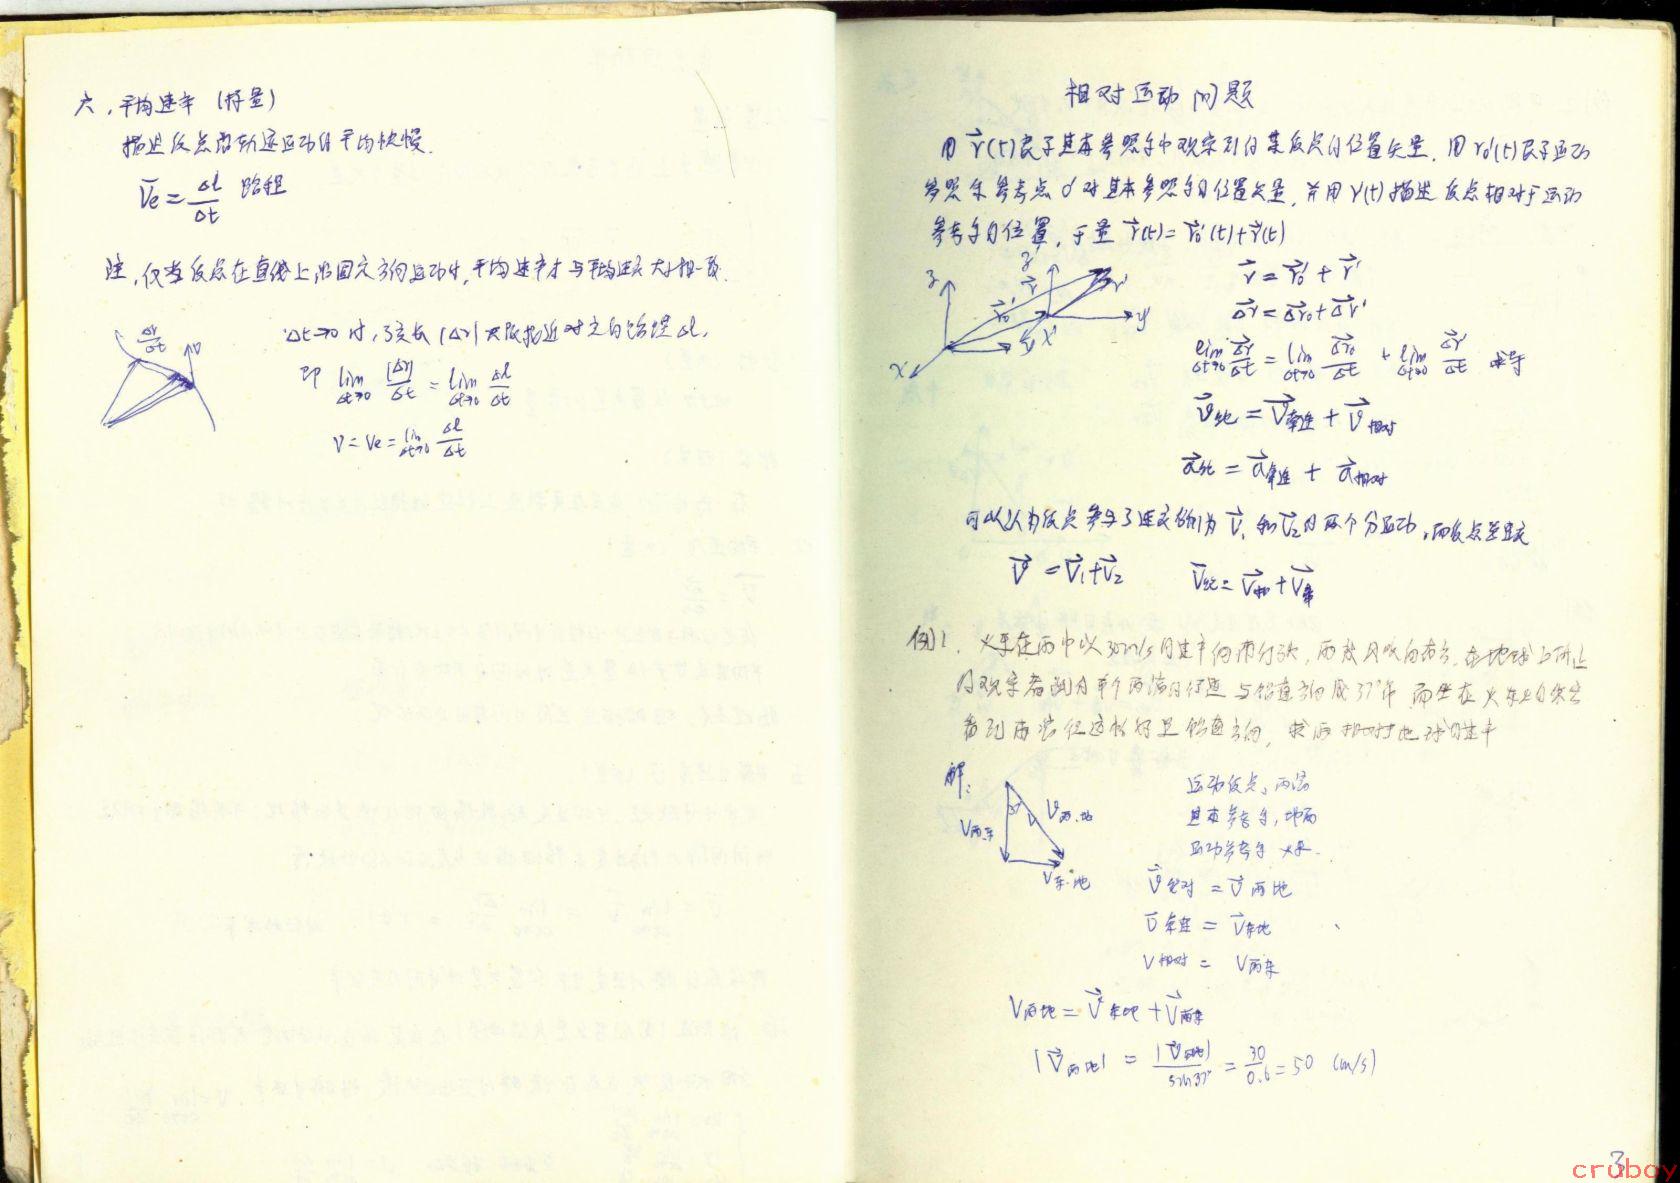 六、平均速率 (标量)
描述质点沿轨迹运动的平均快慢.
V̄e = Δl/Δt 路程
注, 仅当质点在直线上沿固定方向运动时, 平均速率才与平均速度大小相一致.
Δr/Δt
v
Δt→0 时, 弦长 |Δr| 无限接近对应的路程 Δl.
即 lim Δt→0 |Δr|/Δt = lim Δt→0 Δl/Δt
V = Ve = lim Δt→0 Δl/Δt
相对运动问题
用 r⃗(t) 表示基本参照系中观察到的某质点的位置矢量. 用 r₀'(t) 表示运动
参照系参考点 o' 对基本参照系的位置矢量, 并用 r'(t) 描述质点相对于运动
参考系的位置, 于是 r⃗(t) = r⃗₀'(t) + r⃗'(t)
z z' r⃗ r' r⃗₀' y' y x' x
r⃗ = r⃗₀' + r⃗'
Δr⃗ = Δr⃗₀ + Δr⃗'
lim Δt→0 Δr⃗/Δt = lim Δt→0 Δr⃗₀/Δt + lim Δt→0 Δr⃗'/Δt 求导
v⃗绝 = v⃗牵连 + v⃗相对
a⃗绝 = a⃗牵连 + a⃗相对
可以认为质点参与了速度分别为 V⃗₁ 和 V⃗₂ 的两个分运动, 而质点总速度
V⃗ = V⃗₁ + V⃗₂ V⃗绝 = V⃗相 + V⃗牵
例1. 火车在雨中以 30m/s 的速率向南行驶, 雨被风吹向南方, 在地球上静止
的观察者测得单个雨滴的径迹与铅直方向成 37°角 而坐在火车上的乘客
看到雨滴径迹恰好是铅直方向, 求雨相对地球的速率
解:
37° V雨.车 V雨.地 V车.地
运动质点, 雨滴
基本参考系, 地面
运动参考系 火车.
v⃗绝对 = v⃗雨地
v⃗牵连 = v⃗车地
V相对 = V雨车
V雨地 = V⃗车地 + V⃗雨车
|V⃗雨地| = |V⃗车地|/sin37° = 30/0.6 = 50 (m/s)
3
cruboy